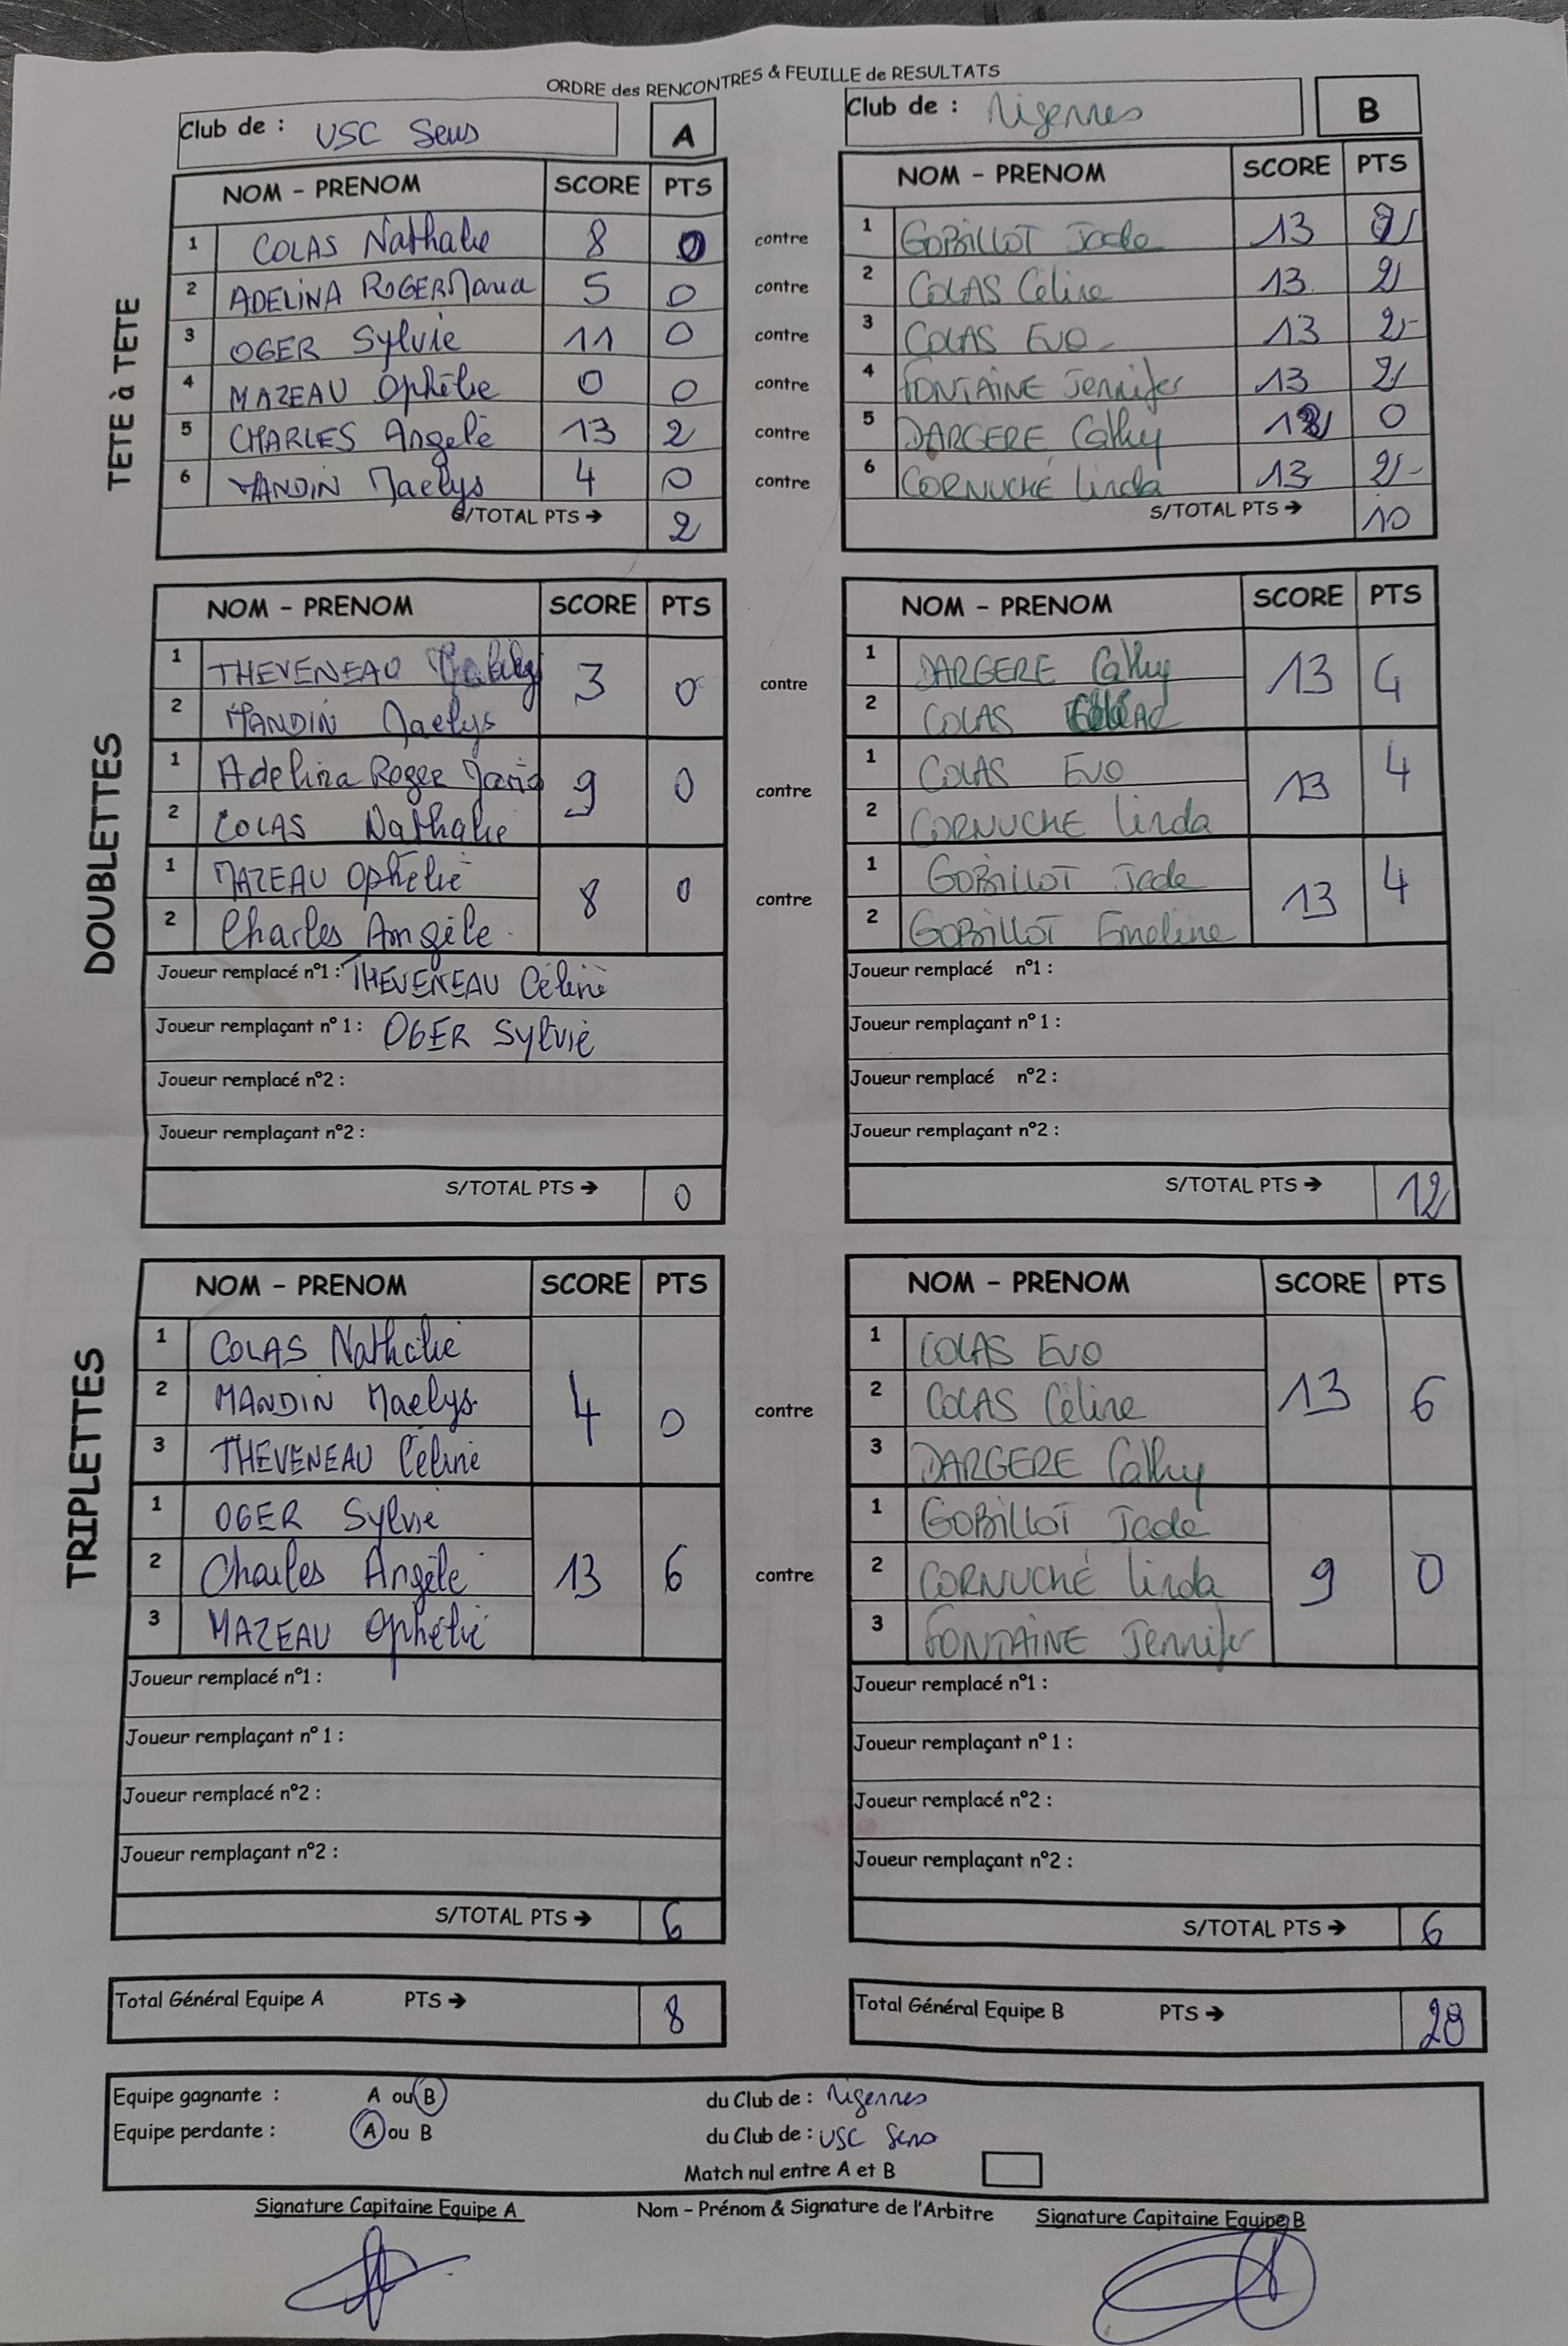 ORDRE des RENCONTRES & FEUILLE de RESULTATS
Club de : USC Sens A
NOM - PRENOM SCORE PTS
TETE à TETE
1 COLAS Nathalie 8 0
2 ADELINA ROGER Maria 5 0
3 OGER Sylvie 11 0
4 MAZEAU Ophélie 0 0
5 CHARLES Angelè 13 2
6 MANDIN Maelys 4 0
S/TOTAL PTS → 2
contre
contre
contre
contre
contre
contre
Club de : Migennes B
NOM - PRENOM SCORE PTS
1 GOBILLOT Jade 13 2
2 COLAS Céline 13 2
3 COLAS Eva 13 2
4 FONTAINE Jennifer 13 2
5 DARGERE Cathy 12 0
6 CORNUCHÉ Linda 13 2
S/TOTAL PTS → 10
DOUBLETTES
NOM - PRENOM SCORE PTS
1 THEVENEAU 3 0
2 MANDIN Maelys
1 Adelina Roger Maria 9 0
2 COLAS Nathalie
1 MAZEAU Ophélie 8 0
2 Charles Angèle
Joueur remplacé n°1 : THEVENEAU Céline
Joueur remplaçant n° 1 : OGER Sylvie
Joueur remplacé n°2 :
Joueur remplaçant n°2 :
S/TOTAL PTS → 0
contre
contre
contre
NOM - PRENOM SCORE PTS
1 DARGERE Cathy 13 4
2 COLAS
1 COLAS Eva 13 4
2 CORNUCHE Linda
1 GOBILLOT Jade 13 4
2 GOBILLOT Emeline
Joueur remplacé n°1 :
Joueur remplaçant n° 1 :
Joueur remplacé n°2 :
Joueur remplaçant n°2 :
S/TOTAL PTS → 12
TRIPLETTES
NOM - PRENOM SCORE PTS
1 COLAS Nathalie
2 MANDIN Maelys 4 0
3 THEVENEAU Céline
1 OGER Sylvie
2 Charles Angèle 13 6
3 MAZEAU Ophélie
Joueur remplacé n°1 :
Joueur remplaçant n° 1 :
Joueur remplacé n°2 :
Joueur remplaçant n°2 :
S/TOTAL PTS → 6
contre
contre
NOM - PRENOM SCORE PTS
1 COLAS Eva
2 COLAS Céline 13 6
3 DARGERE Cathy
1 GOBILLOT Jade
2 CORNUCHÉ Linda 9 0
3 FONTAINE Jennifer
Joueur remplacé n°1 :
Joueur remplaçant n° 1 :
Joueur remplacé n°2 :
Joueur remplaçant n°2 :
S/TOTAL PTS → 6
Total Général Equipe A PTS → 8
Total Général Equipe B PTS → 28
Equipe gagnante : A ou B du Club de : Migennes
Equipe perdante : A ou B du Club de : USC Sens
Match nul entre A et B
Signature Capitaine Equipe A
Nom - Prénom & Signature de l'Arbitre
Signature Capitaine Equipe B